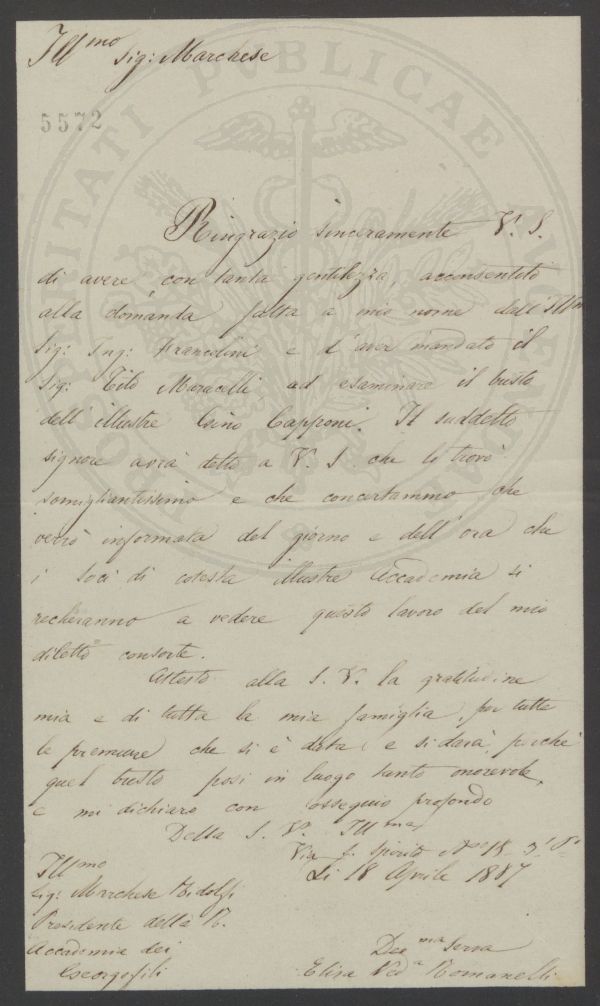 Ill.mo Sig: Marchese
5572
PROSPERITATI PUBLICAE AUGENDAE
Ringrazio sinceramente V. S.
di avere con tanta gentilezza, acconsentito
alla domanda fatta a mio nome dall'Ill.mo
Sig: Ing: Francolini e d'aver mandato il
Sig: Tito Maracelli, ad esaminare il busto
dell'illustre Gino Capponi. Il suddetto
signore avrà detto a V. S. che lo trovò
somigliantissimo e che concertammo che
verrò informata del giorno e dell'ora che
i soci di cotesta illustre Accademia si
recheranno a vedere questo lavoro del mio
diletto consorte.
Attesto alla S. V. la gratitudine
mia e di tutta la mia famiglia, per tutte
le premure che si è data e si darà, perchè
quel busto posi in luogo tanto onorevole,
e mi dichiaro con ossequio profondo
Della S. V. Ill.ma
Via S. Spirito N.o 15
Li 18 Aprile 1887
Ill.mo
Sig: Marchese Ridolfi
Presidente della R.
Accademia dei
Georgofili
Dev.ma Serva
Elisa Ved.a Romanelli